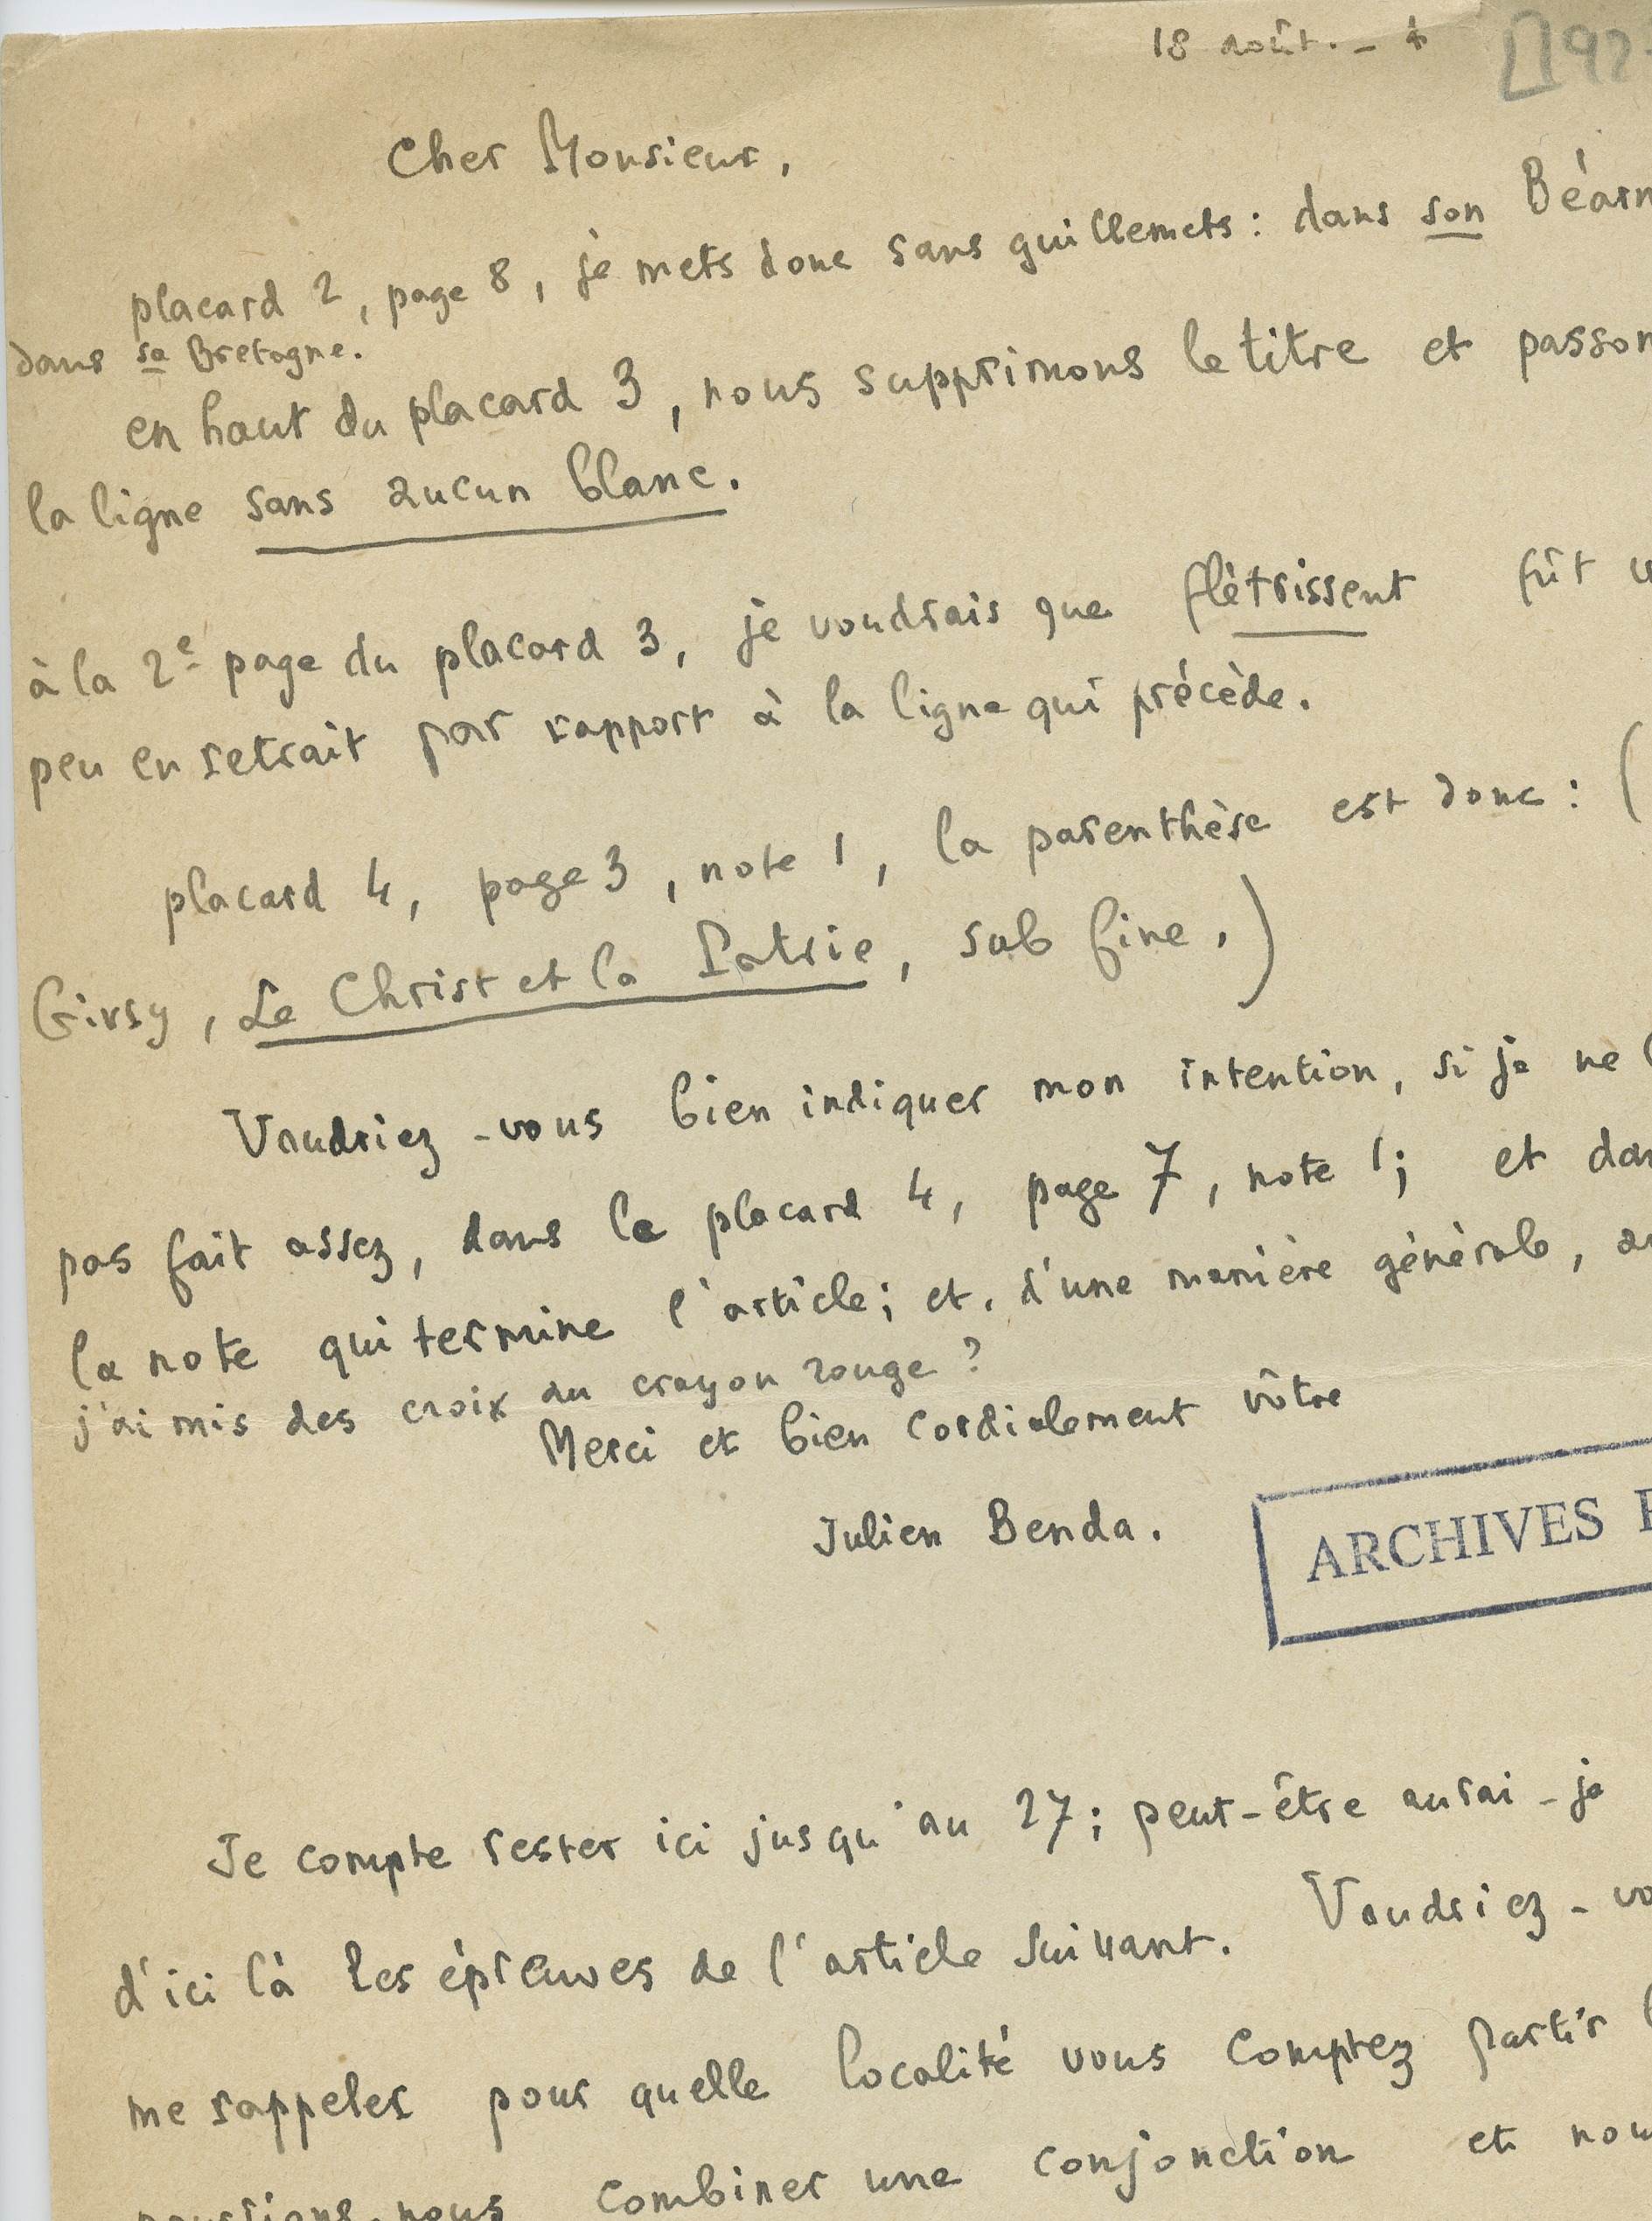 18 août. -
[192
Cher Monsieur,
placard 2, page 8, je mets donc sans guillemets : dans son Béarn
dans sa Bretagne.
en haut du placard 3, nous supprimons le titre et passon
la ligne sans aucun blanc.
à la 2e page du placard 3, je voudrais que flétrissent fût u
peu en retrait par rapport à la ligne qui précède.
placard 4, page 3, note 1, la parenthèse est donc : (
Girsy, Le Christ et la Patrie, sub fine.)
Voudriez-vous bien indiquer mon intention, si je ne l
pas fait assez, dans le placard 4, page 7, note 1; et dan
la note qui termine l'article; et, d'une manière générale, au
j'ai mis des croix au crayon rouge ?
Merci et bien cordialement vôtre
Julien Benda.
ARCHIVES P
Je compte rester ici jusqu'au 27; peut-être aurai-je
d'ici là les épreuves de l'article suivant. Voudriez-vo
me rappeler pour quelle localité vous comptez partir l
pourrions-nous combiner une conjonction et nou